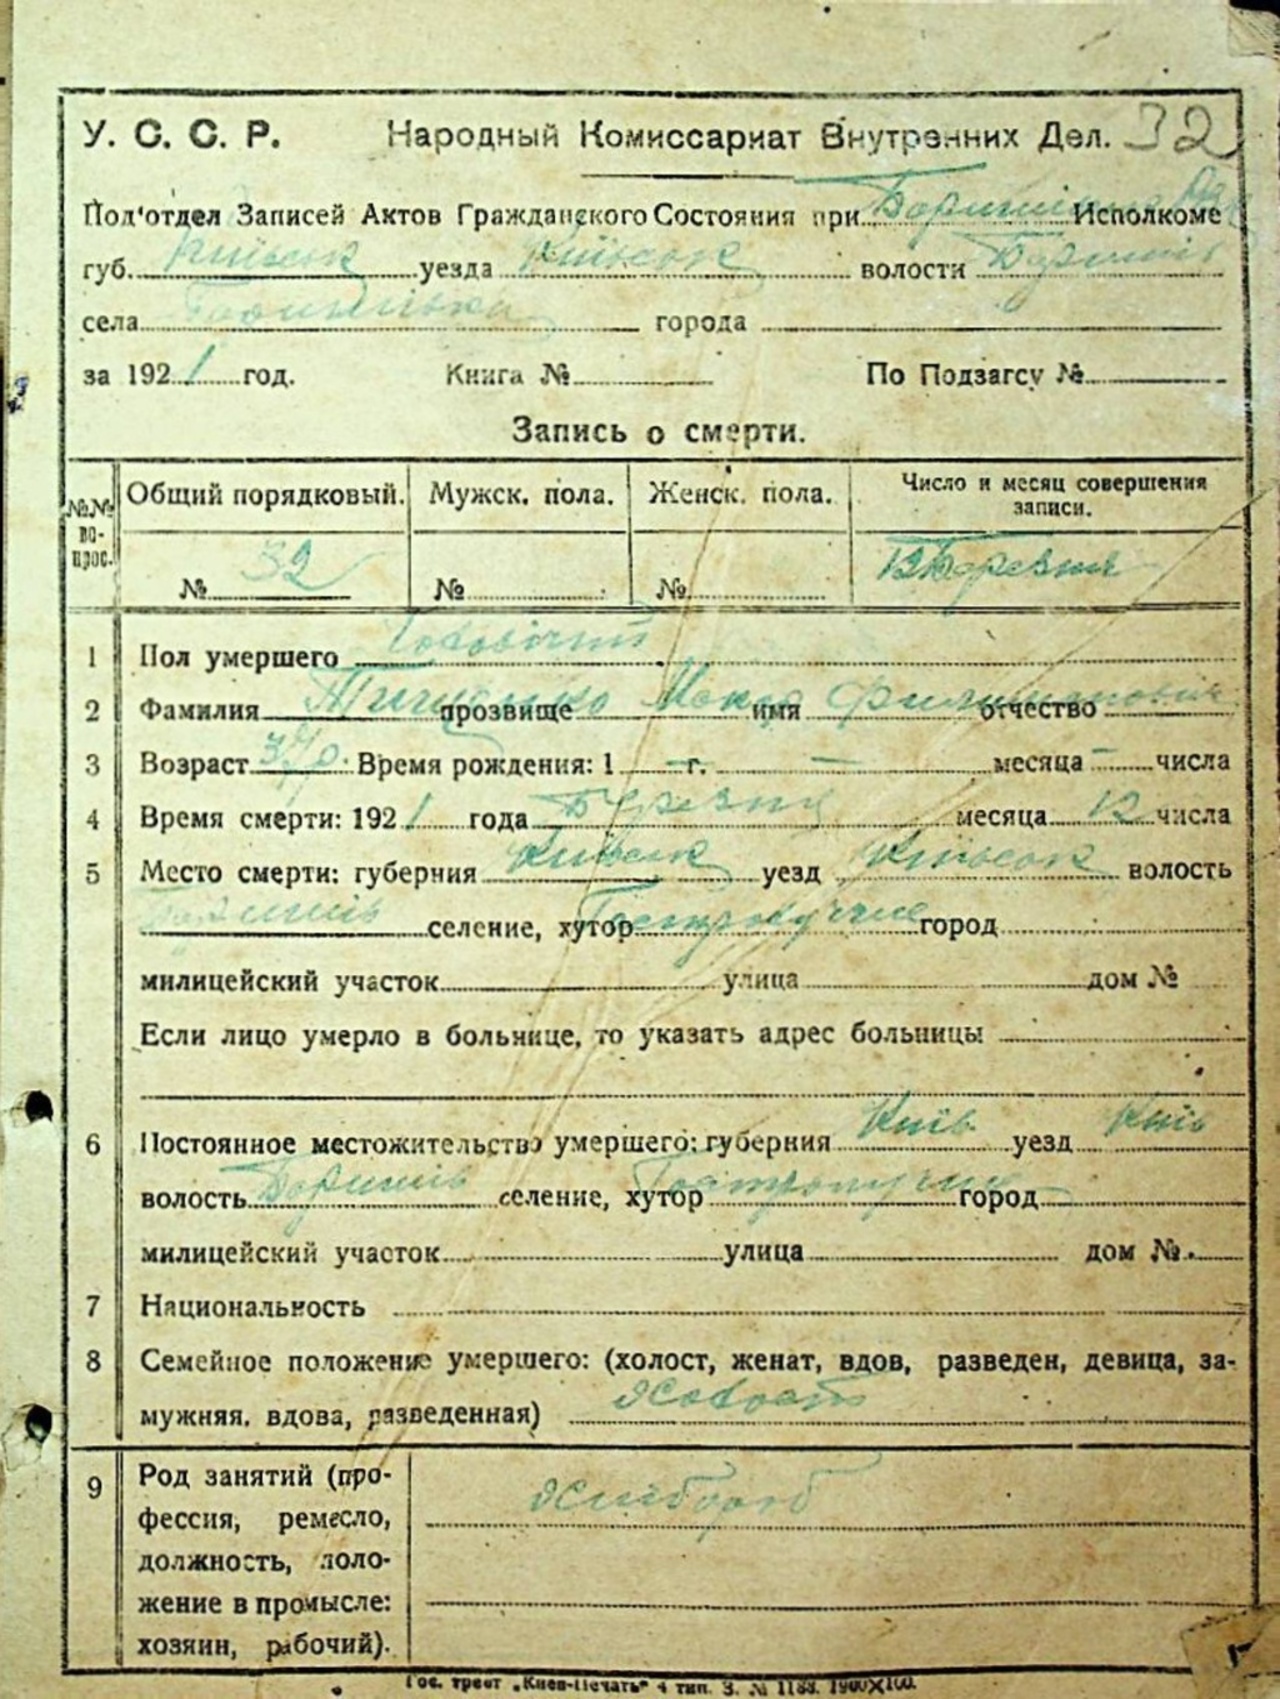 У. С. С. Р. Народный Комиссариат Внутренних Дел. 32
Под'отдел Записей Актов Гражданского Состояния при Исполкоме
губ. Київськ уезда Київськ волости Баришів
села города
за 1921 год. Книга № По Подзагсу №
Запись о смерти.
№№ во-прос. Общий порядковый. Мужск. пола. Женск. пола. Число и месяц совершения записи.
№ 32 № № Березня
1 Пол умершего Чоловічий
2 Фамилия прозвище имя Макар отчество
3 Возраст Время рождения: 1 — г. — месяца — числа
4 Время смерти: 1921 года Березня месяца 12 числа
5 Место смерти: губерния Київськ уезд Київськ волость
Баришів селение, хутор город
милицейский участок улица дом №
Если лицо умерло в больнице, то указать адрес больницы
6 Постоянное местожительство умершего: губерния Київ уезд Київ
волость Баришів селение, хутор город
милицейский участок улица дом №
7 Национальность
8 Семейное положение умершего: (холост, женат, вдов, разведен, девица, за-
мужняя, вдова, разведенная)
9 Род занятий (про-
фессия, ремесло,
должность, поло-
жение в промысле:
хозяин, рабочий).
Гос. трест „Киев-Печать" 4 тип. З. № 1188. 1900×100.